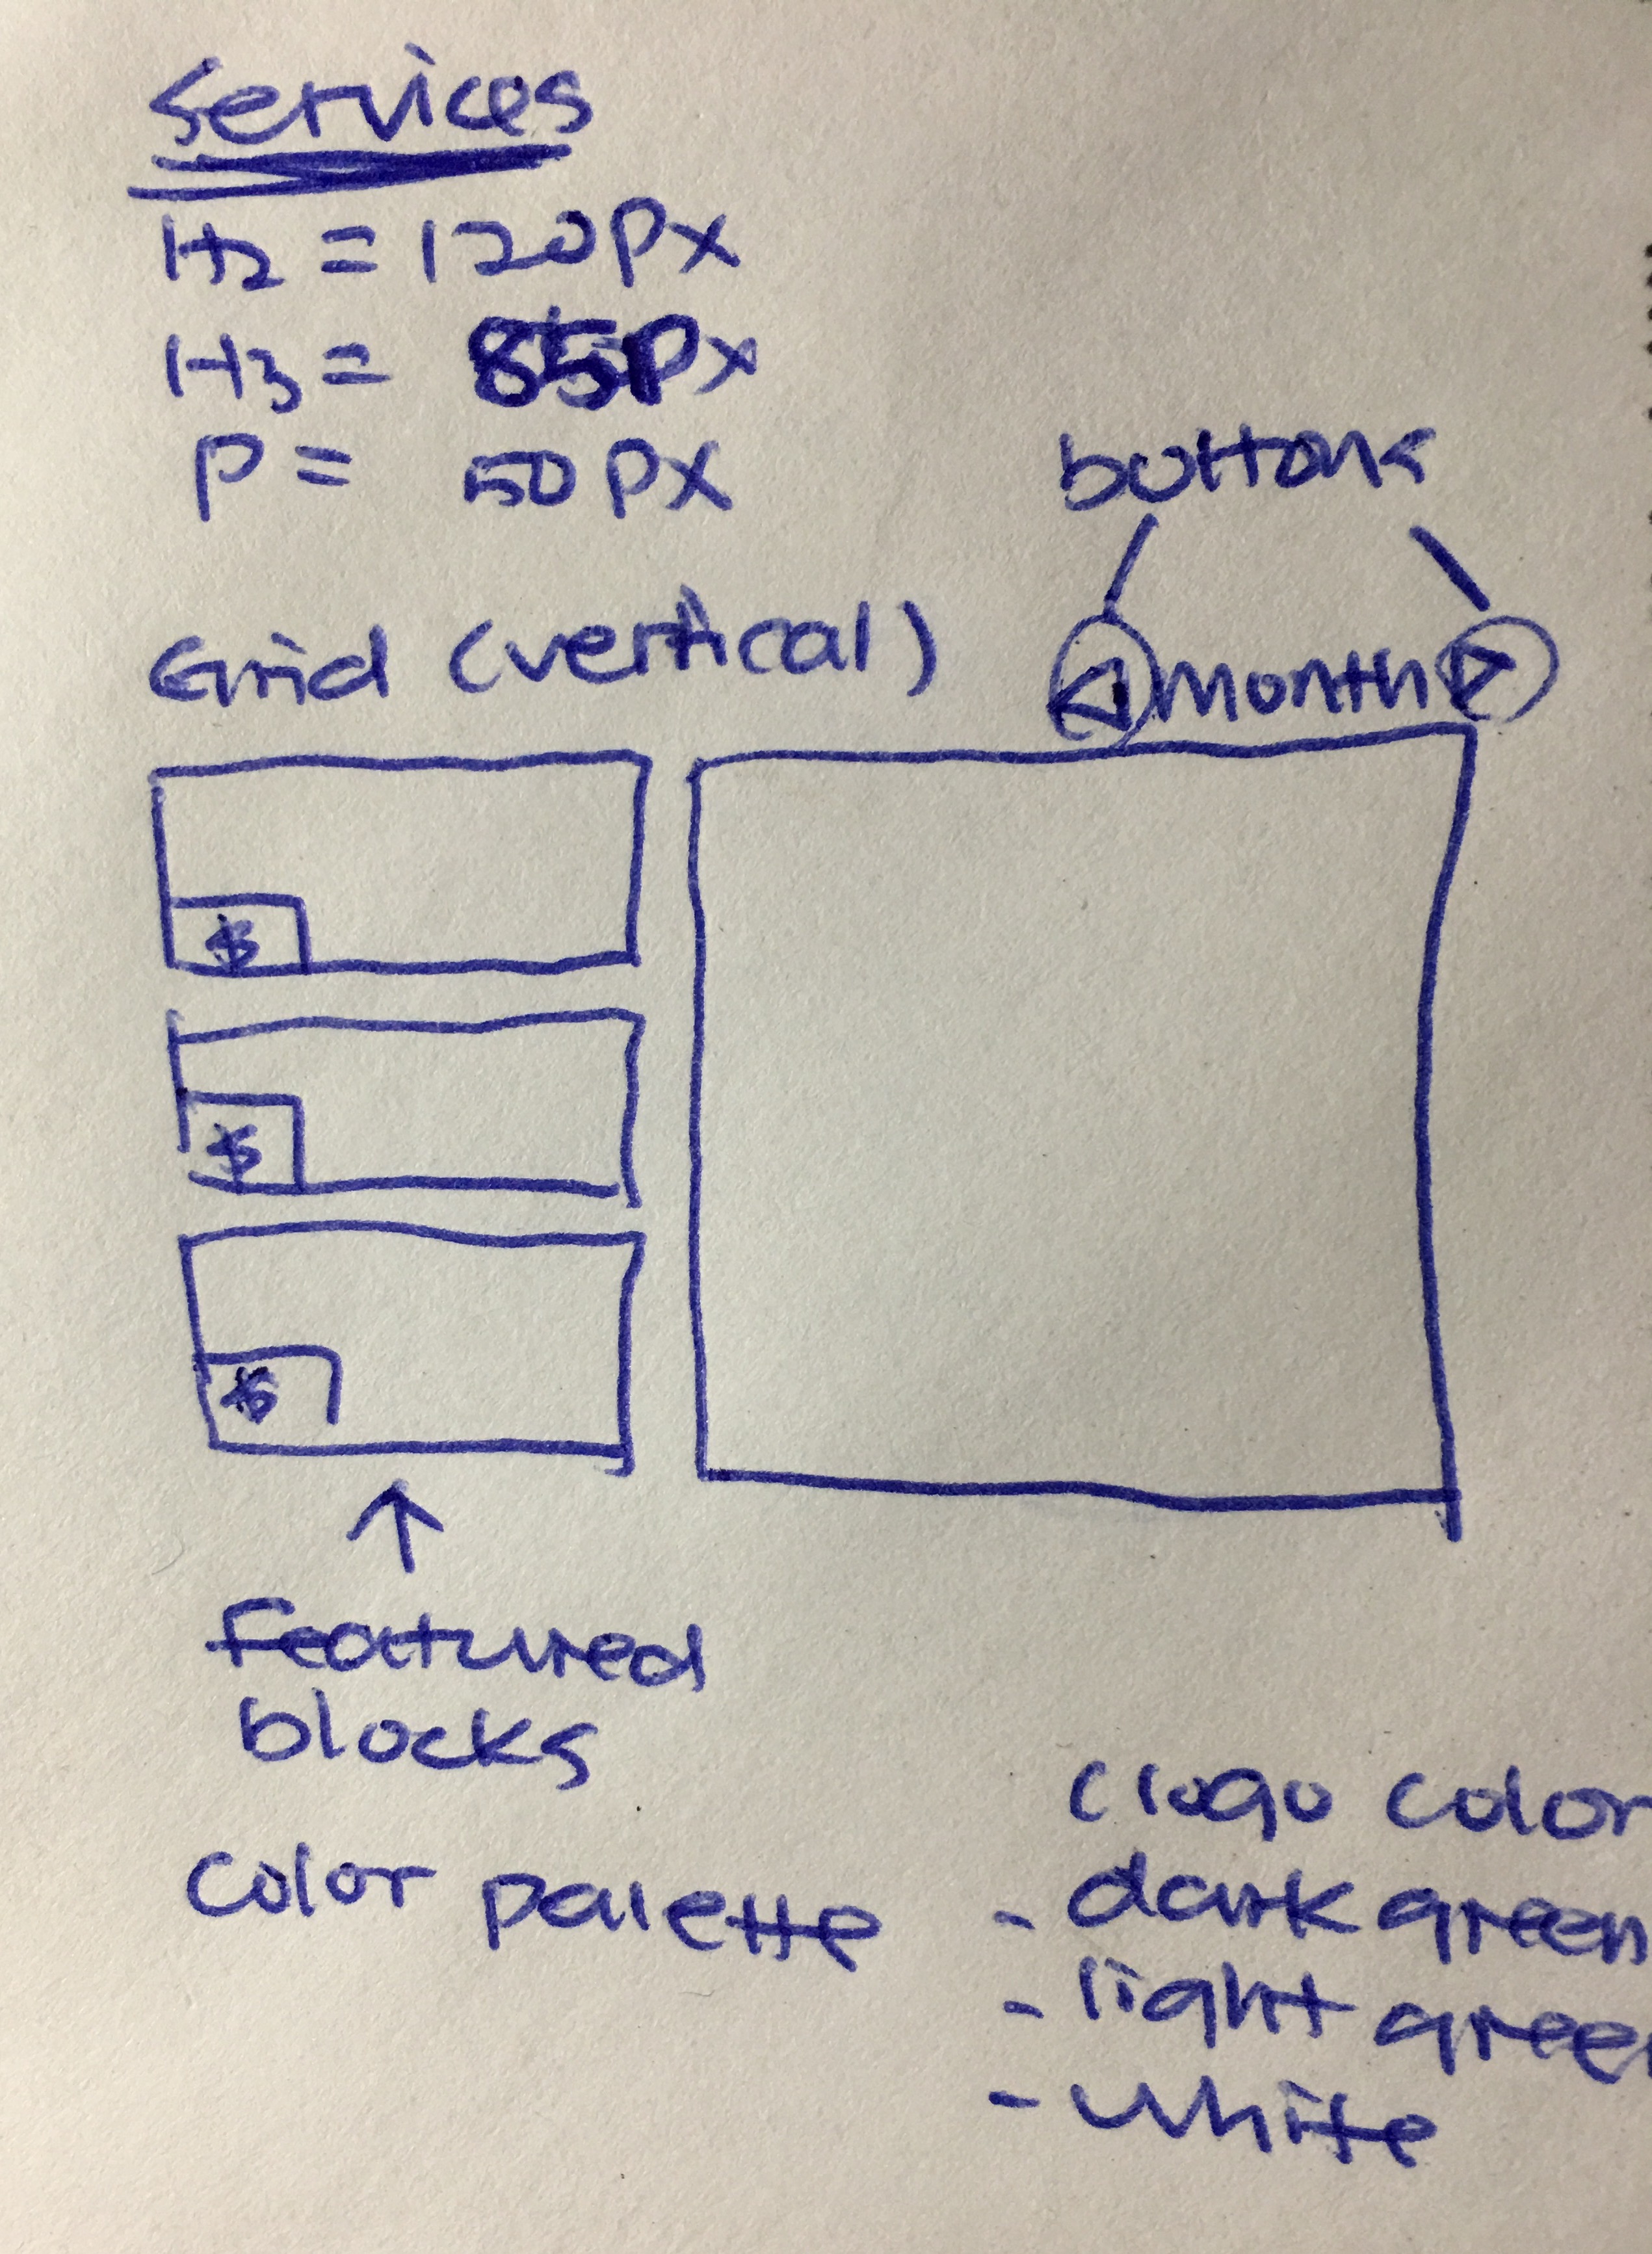 Services
H2 = 120px
H3 = 85Px
P = 50 PX
buttons
Grid (vertical)
month
$
$
$
featured
blocks
(logo color
color palette
- dark green
- light green
- white